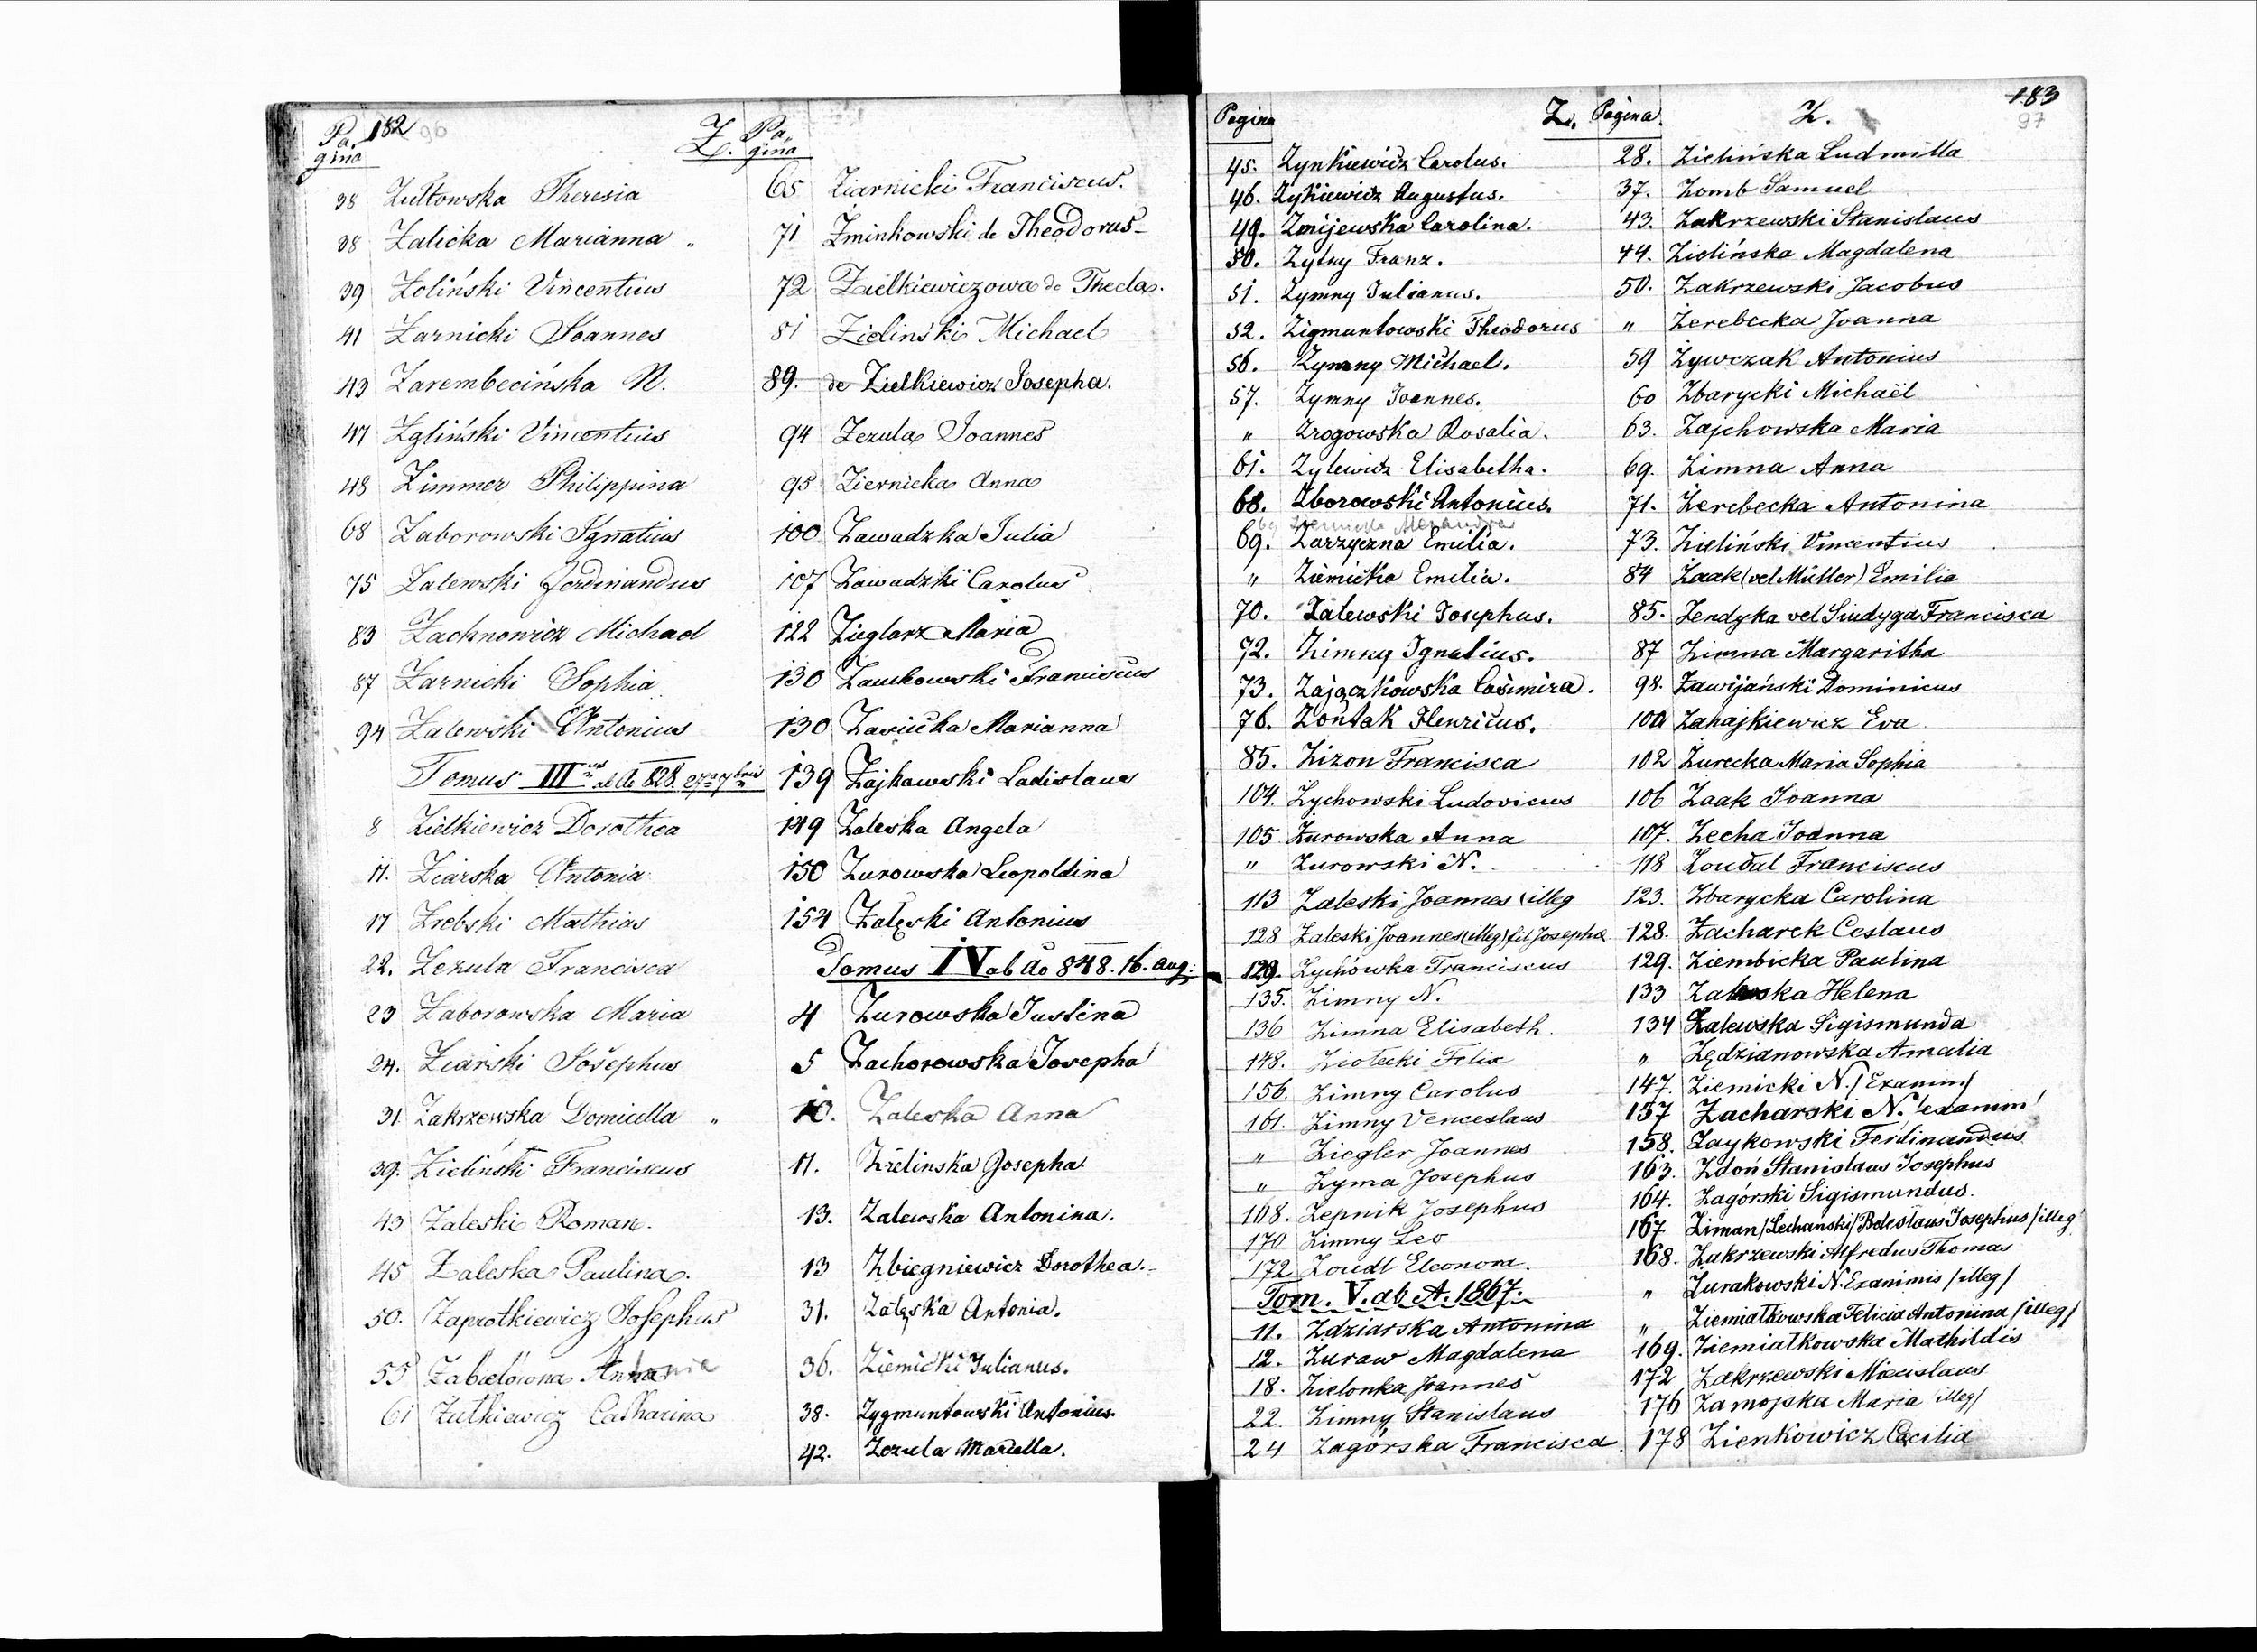 182 96
Pagina Z.
38 Zultowska Theresia
38 Zalicka Marianna
39 Zoliński Vincentius
41 Zarnicki Joannes
43 Zarembecińska N.
47 Zgliński Vincentius
48 Zimmer Philippina
68 Zaborowski Ignatius
75 Zalewski Ferdinandus
83 Zachnowicz Michael
87 Zarnicki Sophia
94 Zalewski Antonius
Tomus III
8 Zielkiewicz Dorothea
11. Ziarska Antonia
17 Zrebski Mathias
22. Zezula Francisca
23 Zaborowska Maria
24. Ziarski Josephus
31 Zakrzewska Domicella „
39. Zieliński Franciscus
43 Zaleski Roman.
45 Zaleska Paulina.
50. Zaprotkiewicz Josephus
55 Zabielówna Antonia
61 Zutkiewicz Catharina
Pagina
65 Ziarnicki Franciscus.
71 Zminkowski de Theodorus
72 Zielkiewiczowa de Thecla.
81 Zieliński Michael
89. de Zielkiewicz Josepha.
94 Zezula Joannes
95 Ziernicka Anna
100 Zawadzka Julia
107 Zawadzki Carolus
122 Zieglarz Maria
130 Zauchowski Franciscus
130 Zasiucka Marianna
139 Zajkawski Ladislaus
149 Zaleska Angela
150 Zurowska Leopoldina
154 Załęski Antonius
Tomus IV ab Ao 848. 16. Aug:
4 Zurowska Justina
5 Zachorowska Josepha
10. Zaleska Anna
11. Zielinska Josepha
13. Zalewska Antonina.
13 Zbiegniewicz Dorothea.
31. Załęska Antonia.
36. Ziemicki Julianus.
38. Zygmuntowski Antonius.
42. Zezula Mariella.
Pagina Z.
45. Zynkiewicz Carolus.
46. Zykiewicz Augustus.
49. Zmijewska Carolina.
50. Zytny Franz.
51. Zymny Julianus.
52. Zigmuntowski Theodorus
56. Zymny Michael.
57. Zymny Joannes.
„ Zrogowska Rosalia.
61. Zylewicz Elisabetha.
68. Zborowski Antonius.
69 Alexandra
69. Zarzyczna Emilia.
„ Ziemicka Emilia.
70. Zalewski Josephus.
72. Zimny Ignatius.
73. Zajączkowska Casimira.
76. Zońtak Henricus.
85. Zizon Francisca
104. Zychowski Ludovicus
105 Zurowska Anna
„ Zurowski N.
113 Zaleski Joannes (illeg
128 Zaleski Joannes (illeg) fil Josepha
129. Zychówka Franciscus
135. Zimny N.
136 Zimna Elisabeth.
148. Ziołecki Felix
156. Zimny Carolus
161. Zimny Venceslaus
„ Ziegler Joannes
„ Zyma Josephus
168. Zepnik Josephus
170 Zimny Leo
172 Zoudl Eleonora.
Tom. V. ab A. 1867.
11. Zdziarska Antonina
12. Zuraw Magdalena
18. Zielonka Joannes
22. Zimny Stanislaus
24 Zagórska Francisca
183
97
Pagina. Z.
28. Zielińska Ludmilla
37. Zomb Samuel
43. Zakrzewski Stanislaus
44. Zielińska Magdalena
50. Zakrzewski Jacobus
„ Zerebecka Joanna
59 Zywczak Antonius
60 Zbarycki Michaël
63. Zajchowska Maria
69. Zimna Anna
71. Zerebecka Antonina
73. Zieliński Vincentius
84 Zaak (vel Müller) Emilia
85. Zendyka vel Siudyga Francisca
87 Zimna Margaritha
98. Zawijański Dominicus
100 Zahajkiewicz Eva
102 Zurecka Maria Sophia
106 Zaak Joanna
107. Zecha Joanna
118 Zoudal Franciscus
123. Zbarycka Carolina
128. Zacharek Ceslaus
129. Ziembicka Paulina
133 Zaleska Helena
134 Zalewska Sigismunda
„ Zędzianowska Amalia
147. Ziemicki N. / Exanim/
157 Zacharski N. /exanim/
158. Zaykowski Ferdinandus
163. Zdoń Stanislaus Josephus
164. Zagórski Sigismundus.
167 Ziman /Lechanski/ Boleslaus Josephus /illeg/
168. Zakrzewski Alfredus Thomas
„ Zurakowski N. Exanimis /illeg/
„ Ziemiatkowska Felicia Antonina /illeg/
169. Ziemiatkowska Mathildis
172 Zakrzewski Miecislaus
176 Zamojska Maria /illeg/
178 Zienkowicz Cecilia